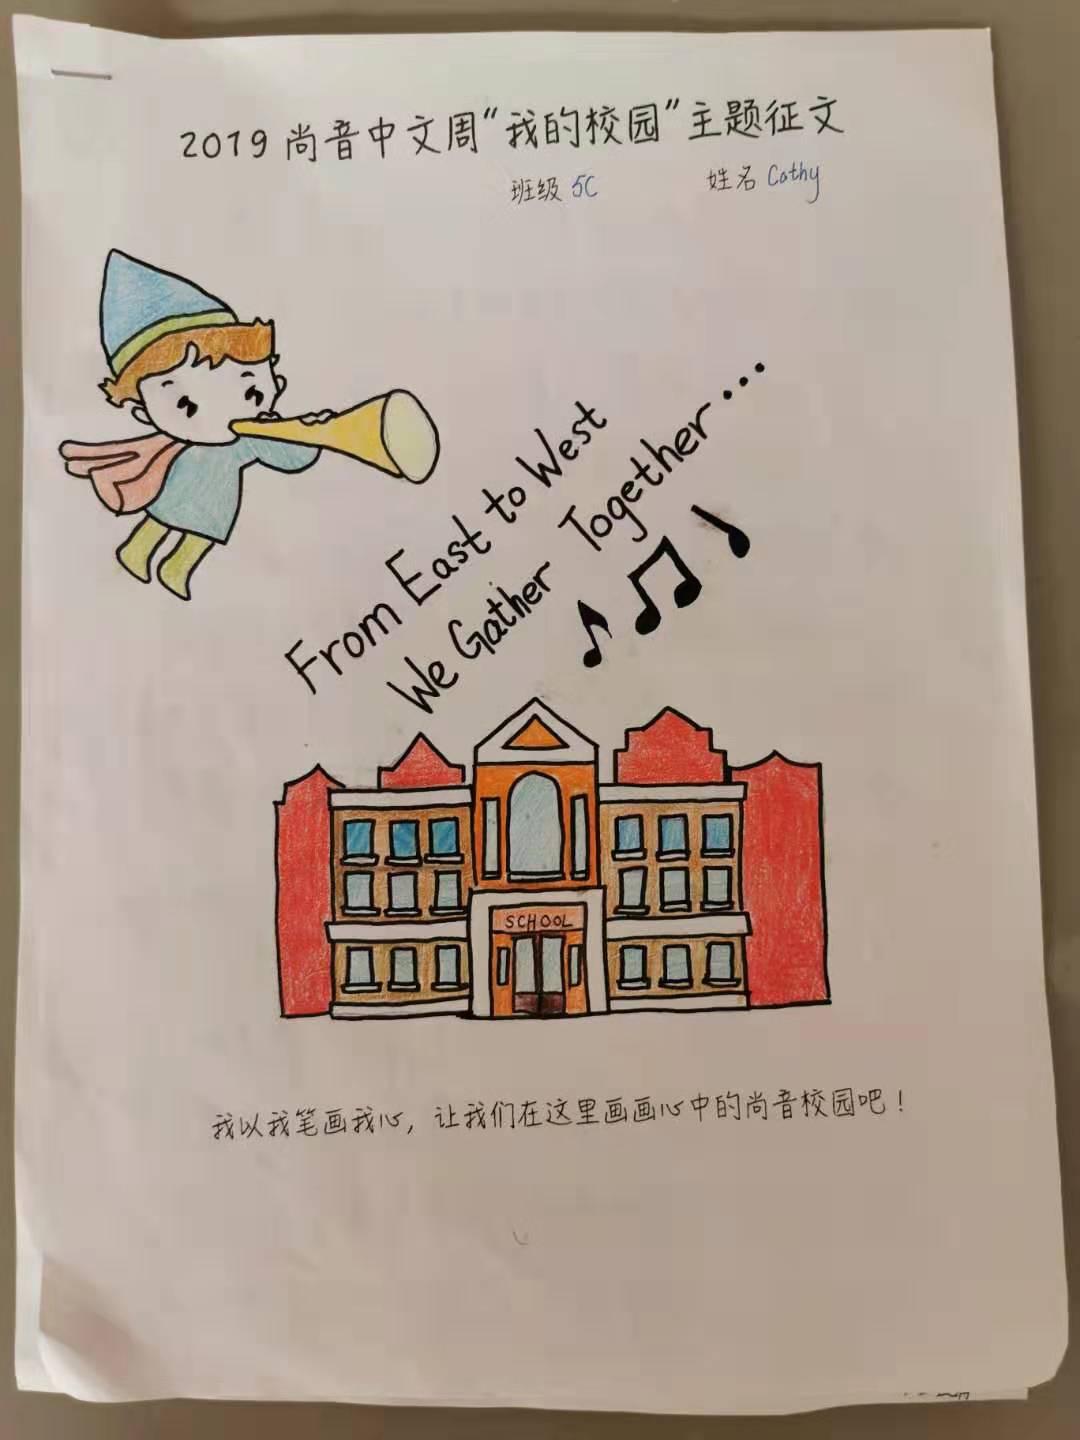 2019尚音中文周“我的校园”主题征文
班级 5C 姓名 Cathy
From East to West
We Gather Together...
SCHOOL
我以我笔画我心，让我们在这里画画心中的尚音校园吧！